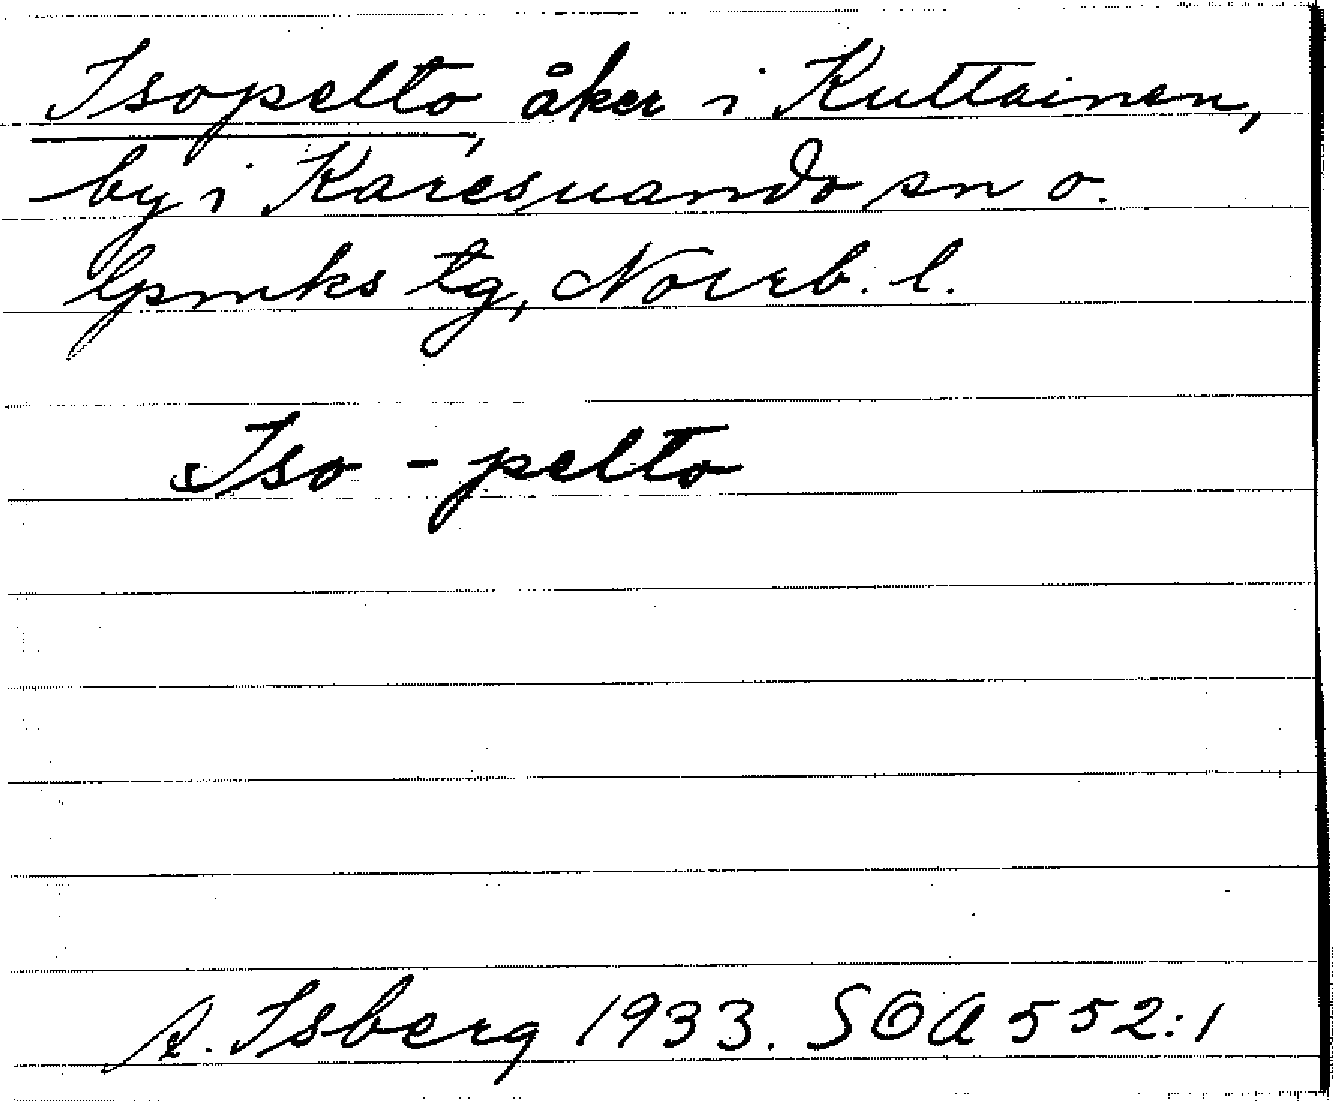 Isopelto, åker i Kuttainen,
by i Karesuando sn o.
lpmks tg, Norrb. l.
Iso - pelto
A. Isberg 1933. SOA 552:1